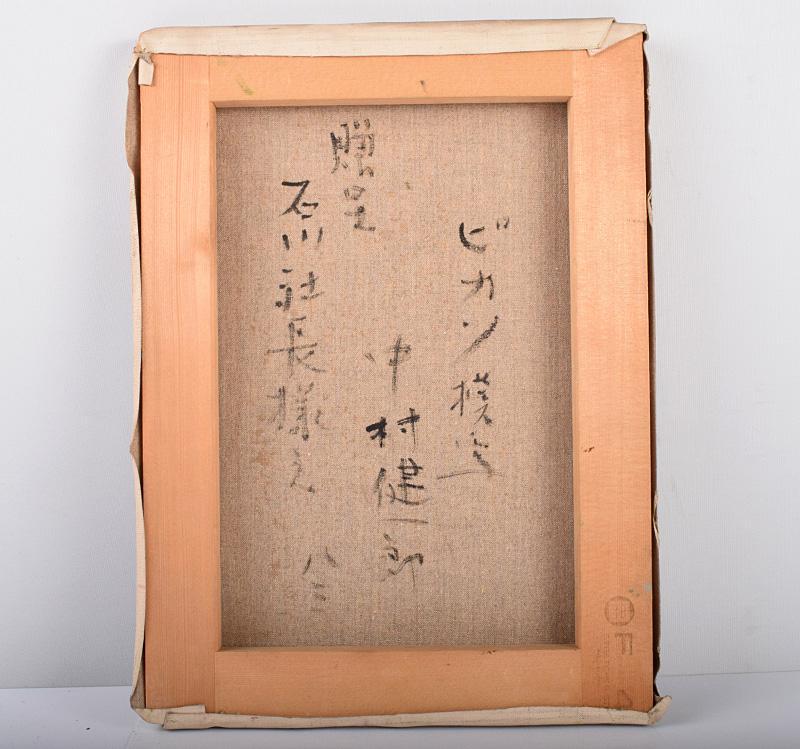 ピカソ模造
中村健一郎
贈呈
石川社長様え
八三
F